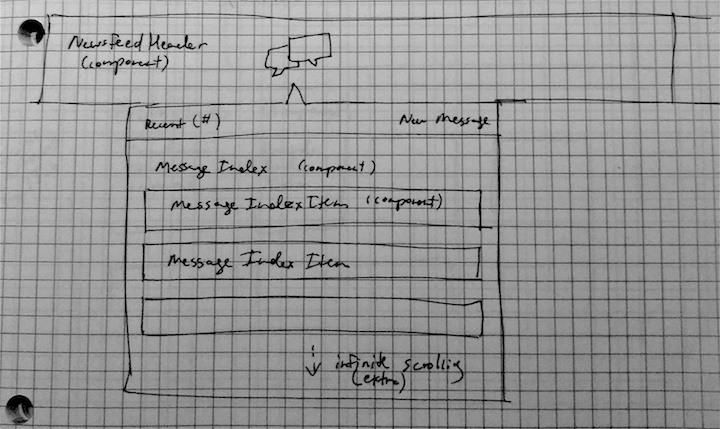 Newsfeed Header
(component)
Recent (#)
New Message
Message Index (component)
Message Index Item (component)
Message Index Item
infinite scrolling
(extra)